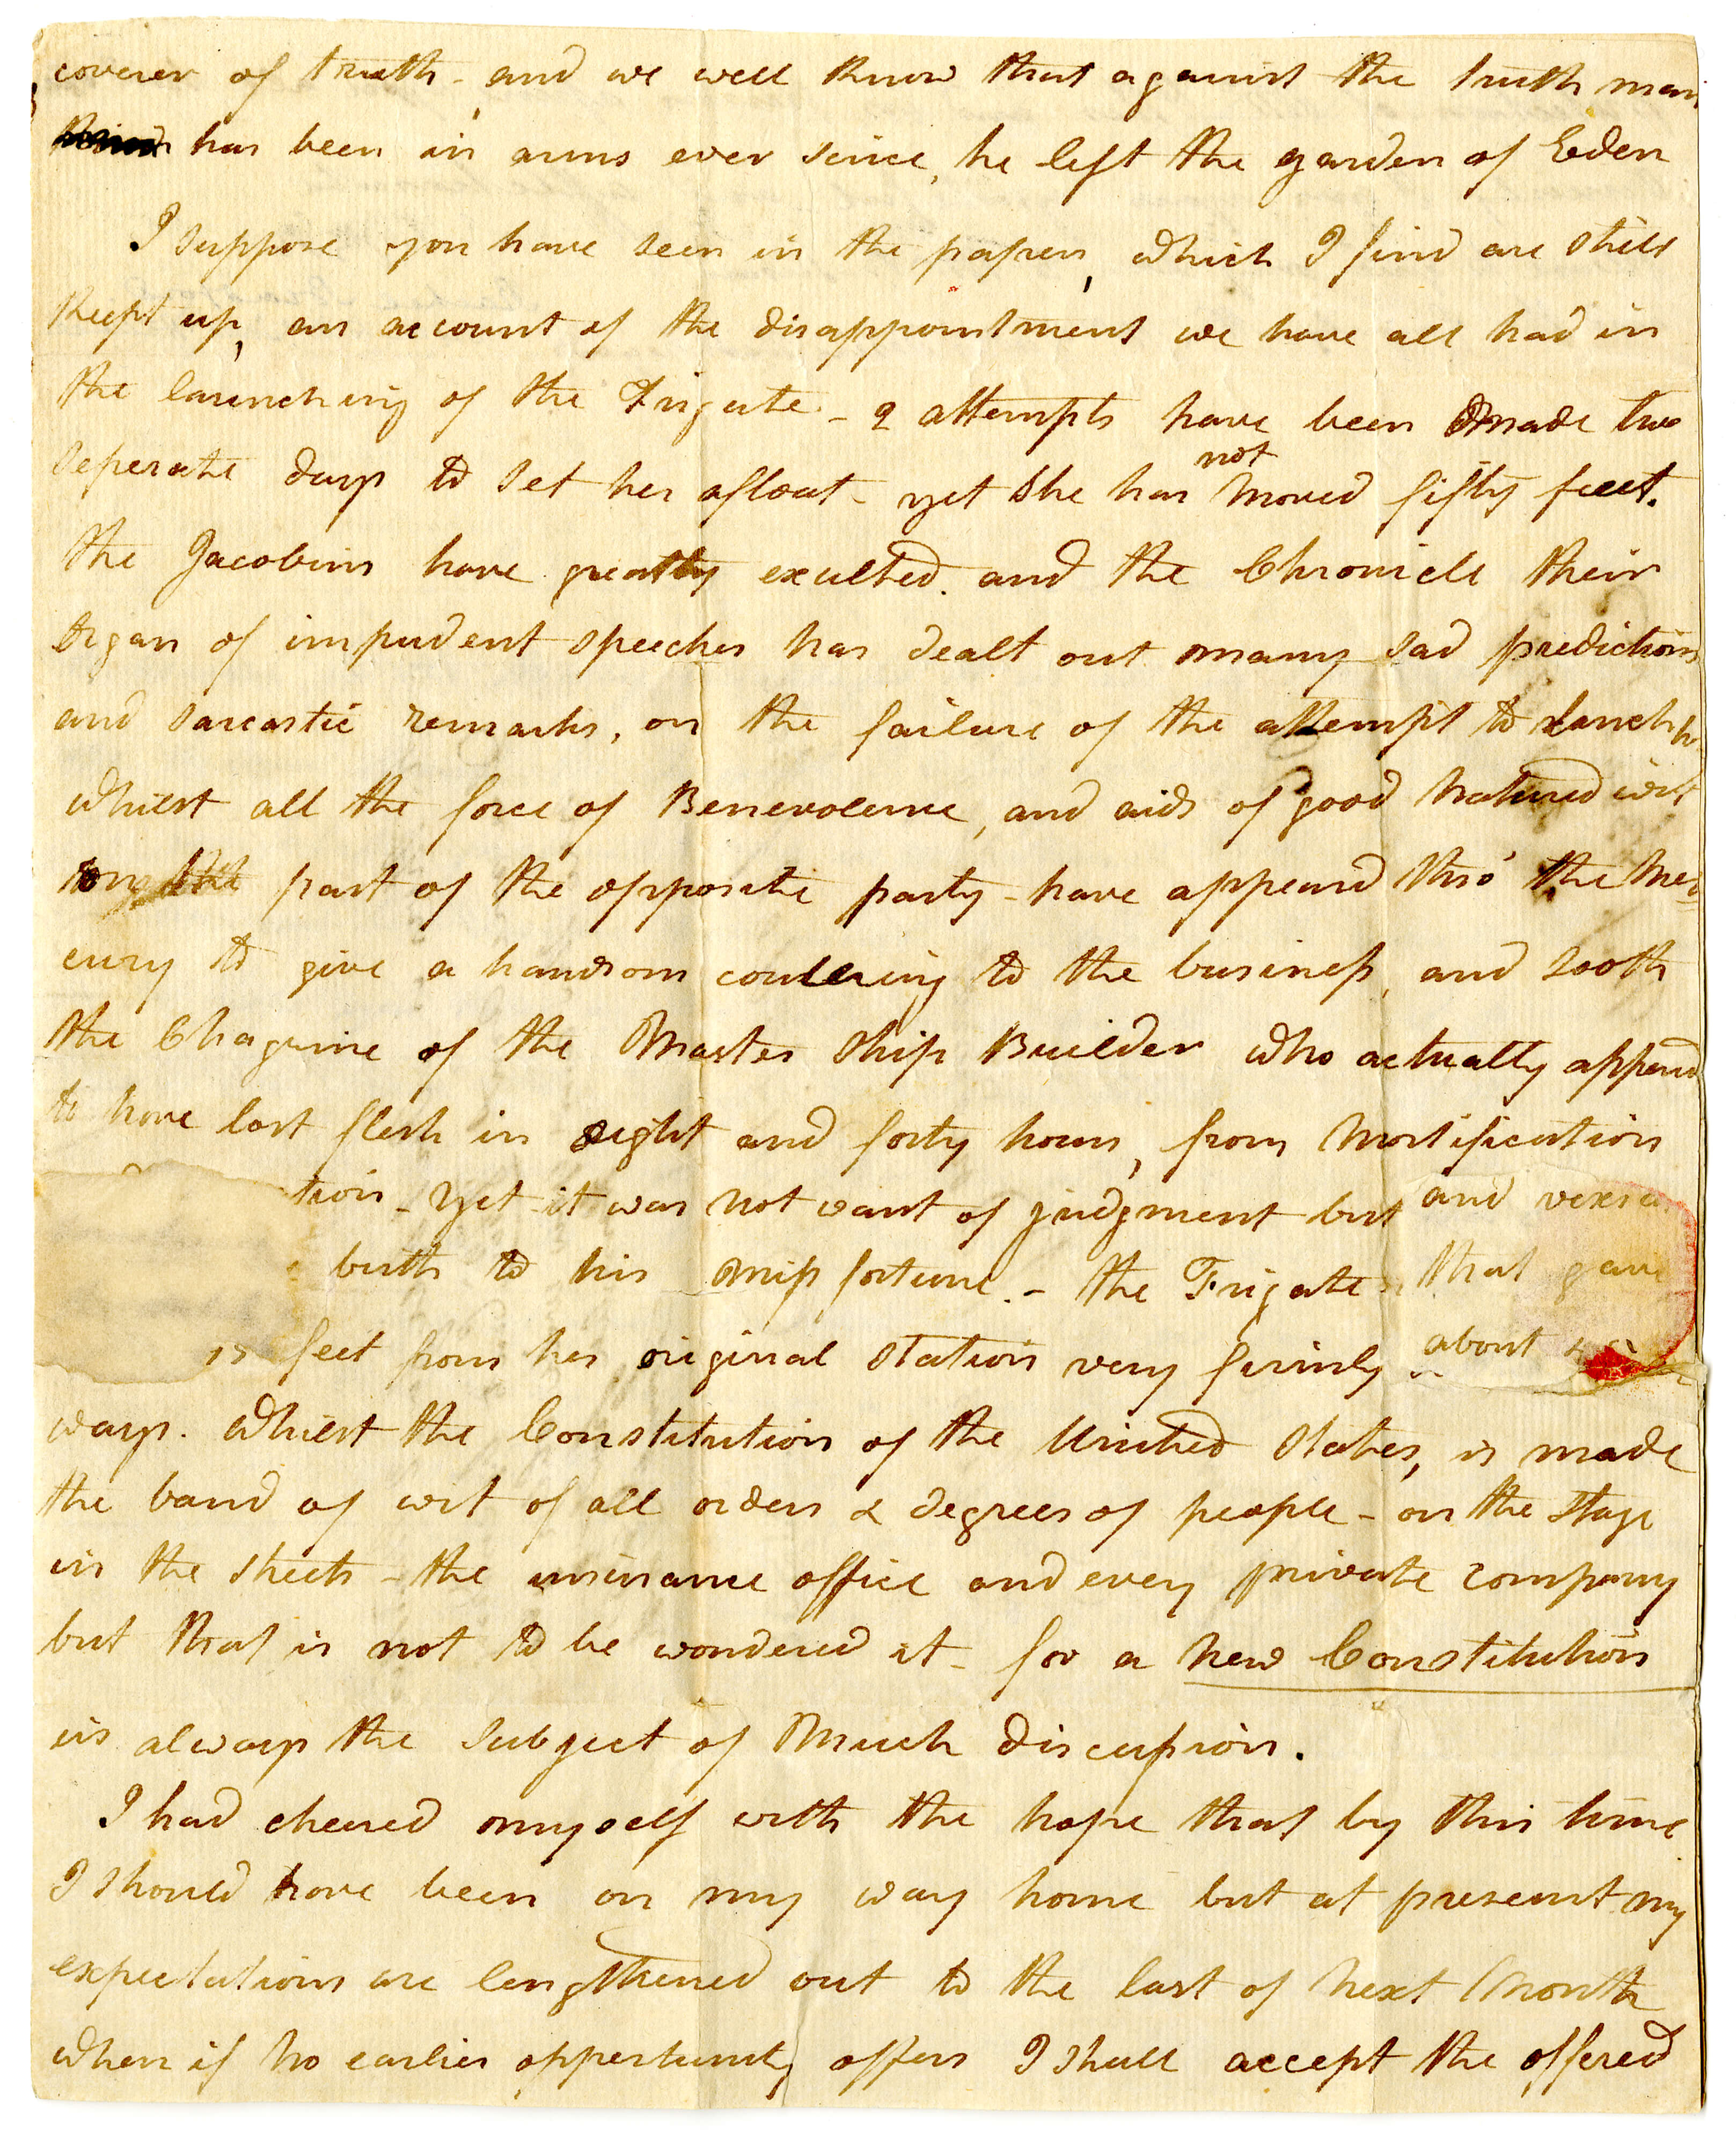 coverer of truth - and we well know that against the truth man
has been in arms ever since, he left the garden of Eden
I suppose you have seen in the papers, which I find are still
Kept up, an account of the disappointment we have all had in
the launching of the Frigate - 2 attempts have been made two
seperate days to set her afloat - yet she has not moved fifty feet.
the Jacobins have greatly exulted. and the Chronicle their
organ of impudent speeches has dealt out many sad predictions
and sarcastic remarks, on the failure of the attempt to lanch her
whilst all the force of Benevolence, and aids of good natured wit
part of the opposite party - have appeard thro' the Mer
cury to give a handsom coulering to the business, and sooth
the Chagrine of the Master Ship Builder who actually appeard
to have lost flesh in eight and forty hours, from Mortification
tion - yet it was not want of judgment but and vexa
birth to his missfortune. - the Frigate that gave
feet from her original station very firmly about
ways. whilst the Constitution of the United States, is made
the band of wit of all orders & degrees of people - on the stage
in the streets - the insurance office and every private company
but that is not to be wondered at - for a new Constitution
is always the subject of Much discussion.
I had cheered myself with the hope that by this time
I should have been on my way home but at present my
expectations are lengthened out to the last of next Month
when if no earlier oppertunity offers I shall accept the offered